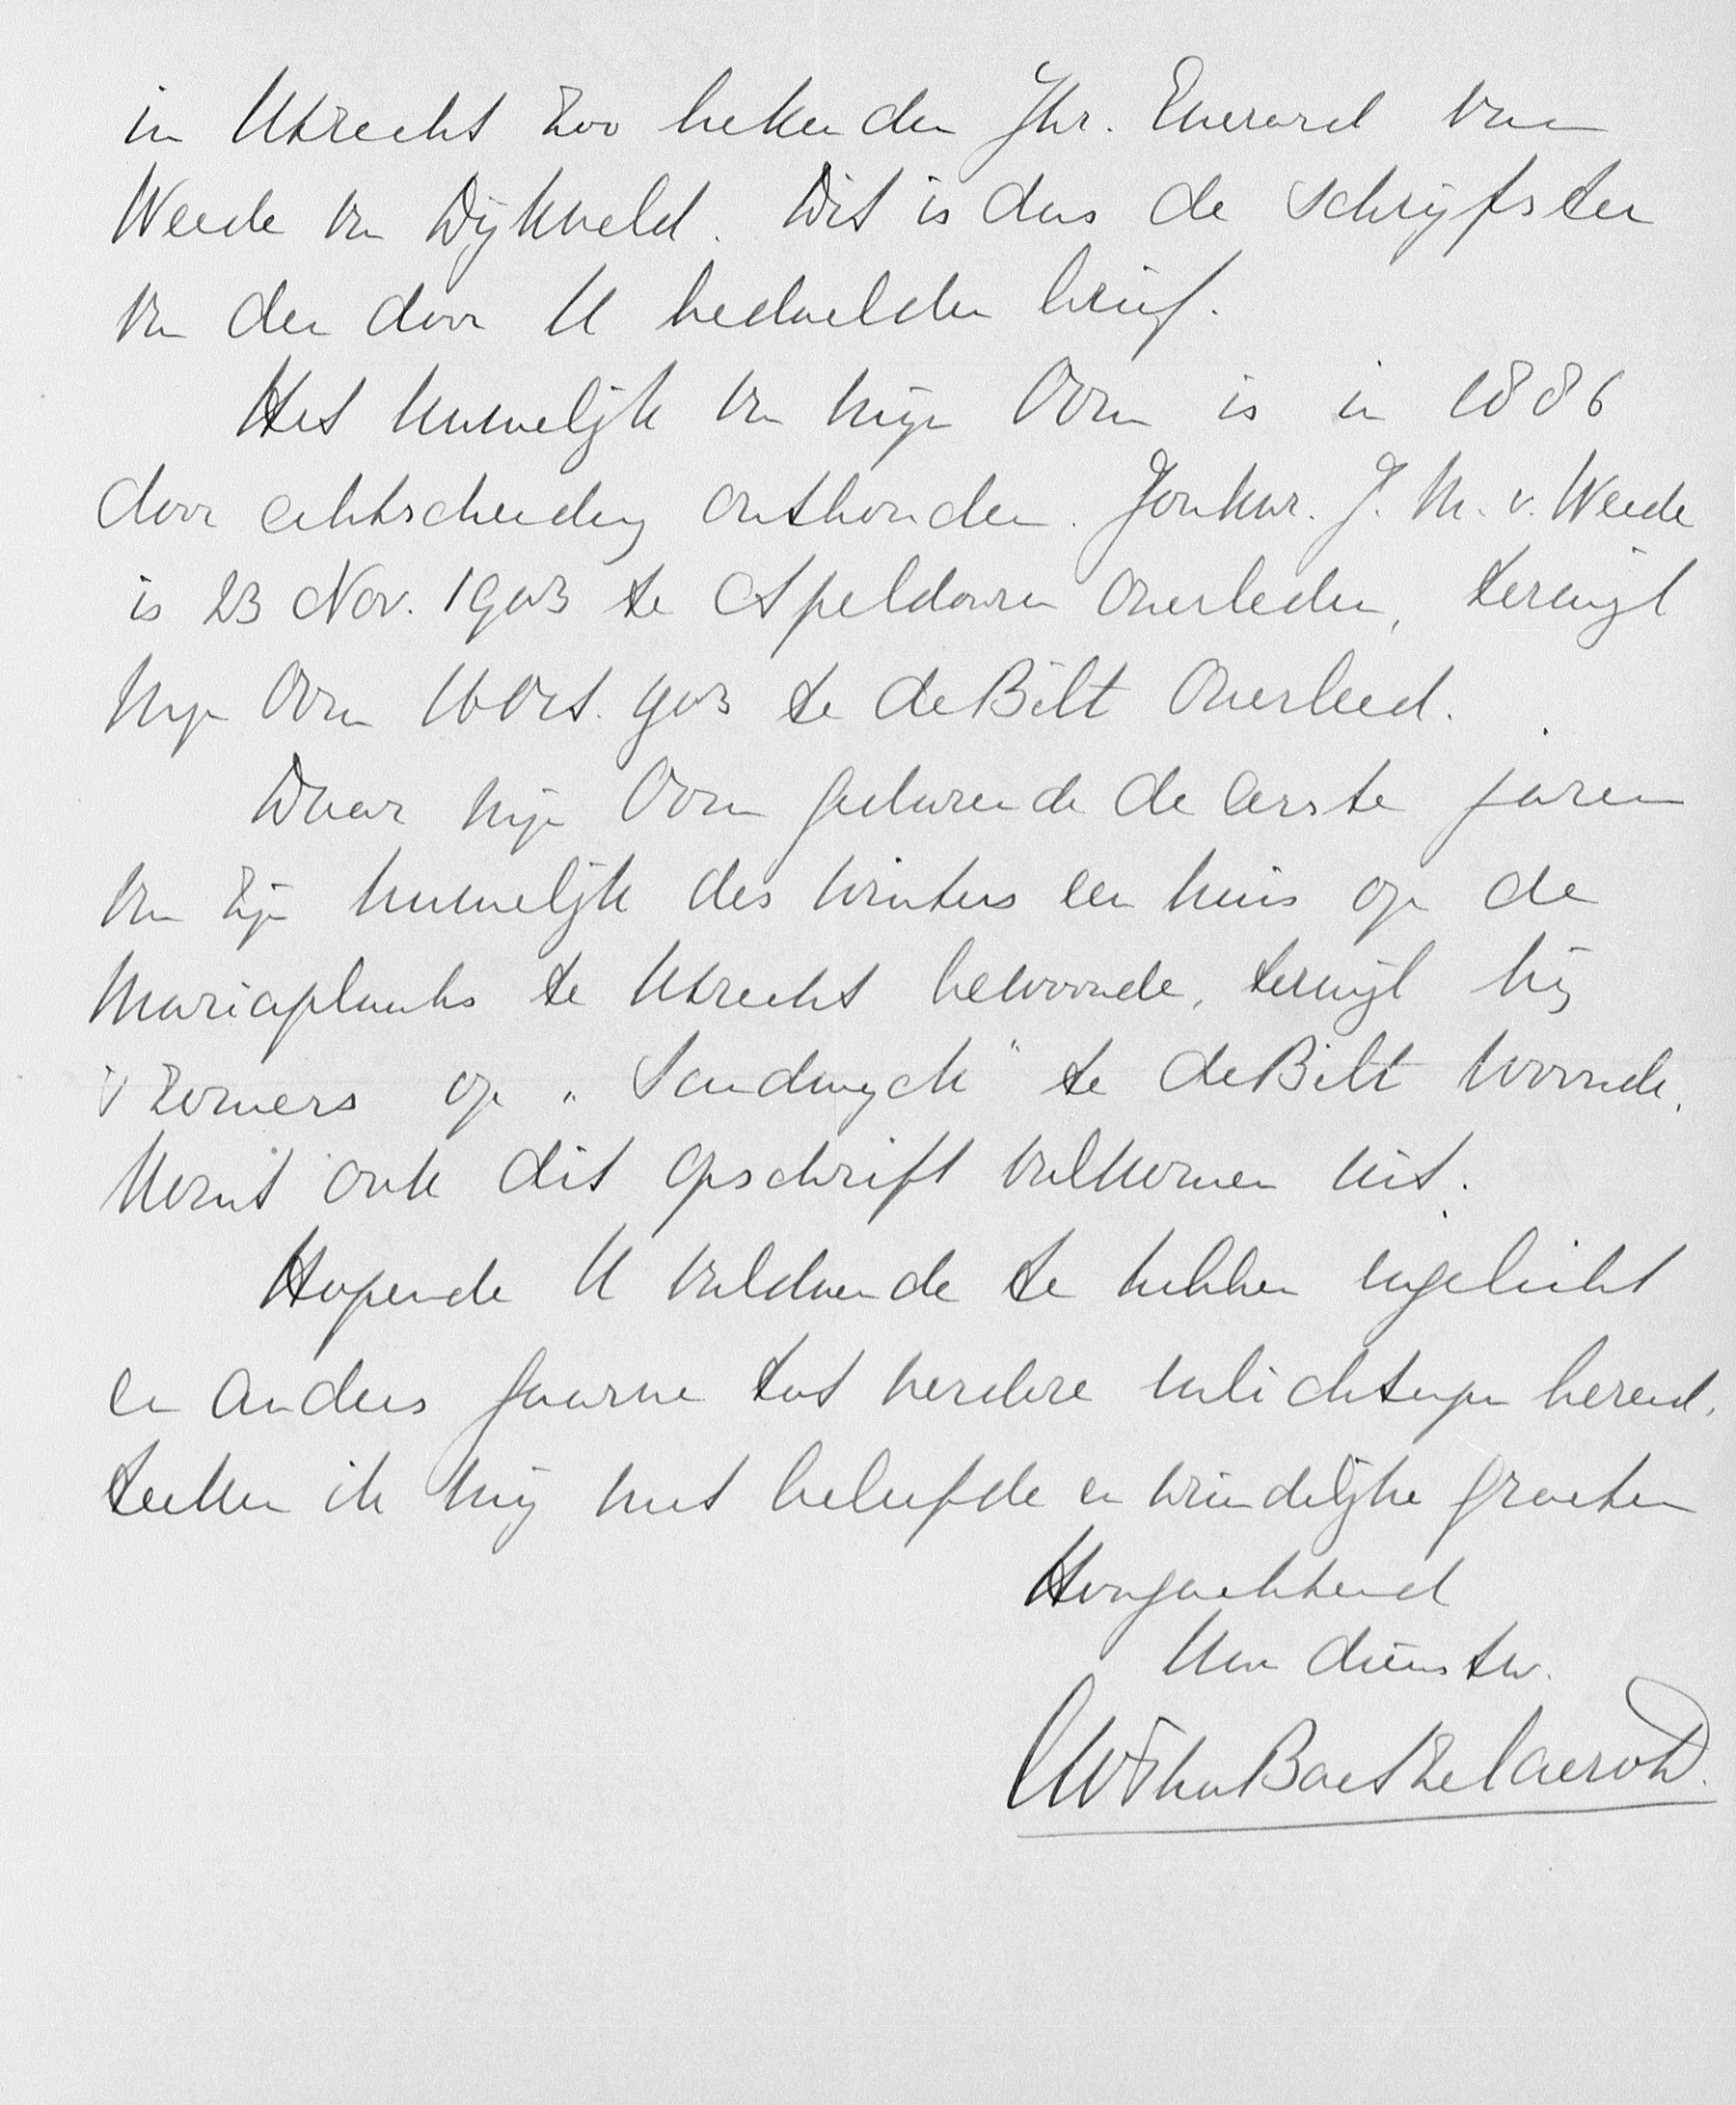 in Utrecht zoo bekenden Jhr. Everard van
Weede van Dijkveld. Dit is dus de schrijfster
van den door U bedoelden brief.
Het huwelijk van mijn Oom is in 1886
door echtscheiding ontbonden. Jonkvr. J. M. v. Weede
is 23 Nov. 1903 te Apeldoorn overleden, terwijl
mijn Oom 16 Oct. 1903 te de Bilt overleed.
Daar mijn Oom gedurende de eerste jaren
van zijn huwelijk des winters een huis op de
Mariaplaats te Utrecht bewoonde, terwijl hij
's zomers op "Sandwyck" te de Bilt woonde,
komt ook dit opschrift volkomen uit.
Hopende U voldoende te hebben ingelicht
en anders gaarne tot verdere inlichtingen bereid,
teeken ik mij met beleefde en vriendelijke groeten
Hoogachtend
Uw dienstw.
van Boetzelaer v D.